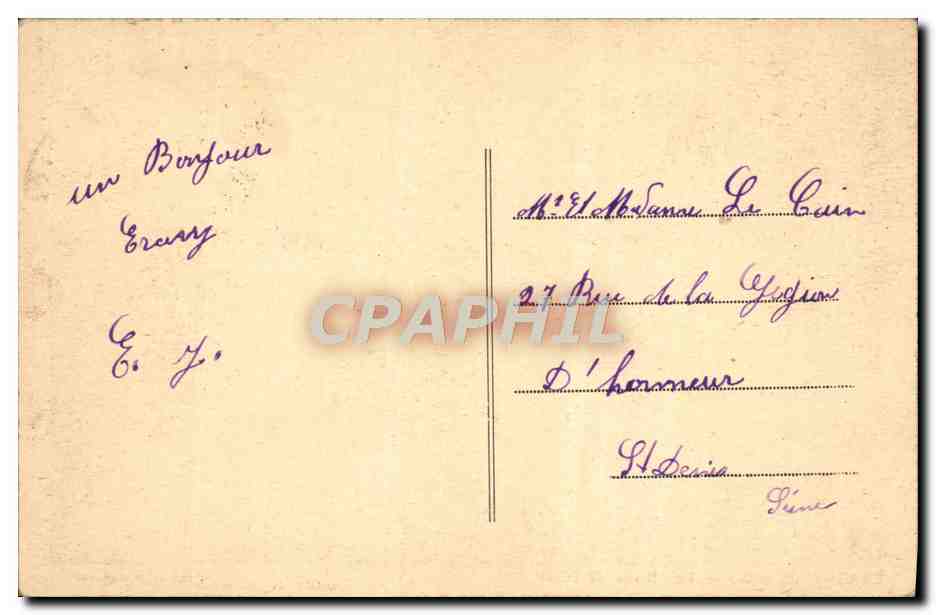 un Bonjour
E. J.
Mr Et Madame Le Cain
27 Rue de la Légion
D'honneur
St Denis
Seine
CPAPHIL